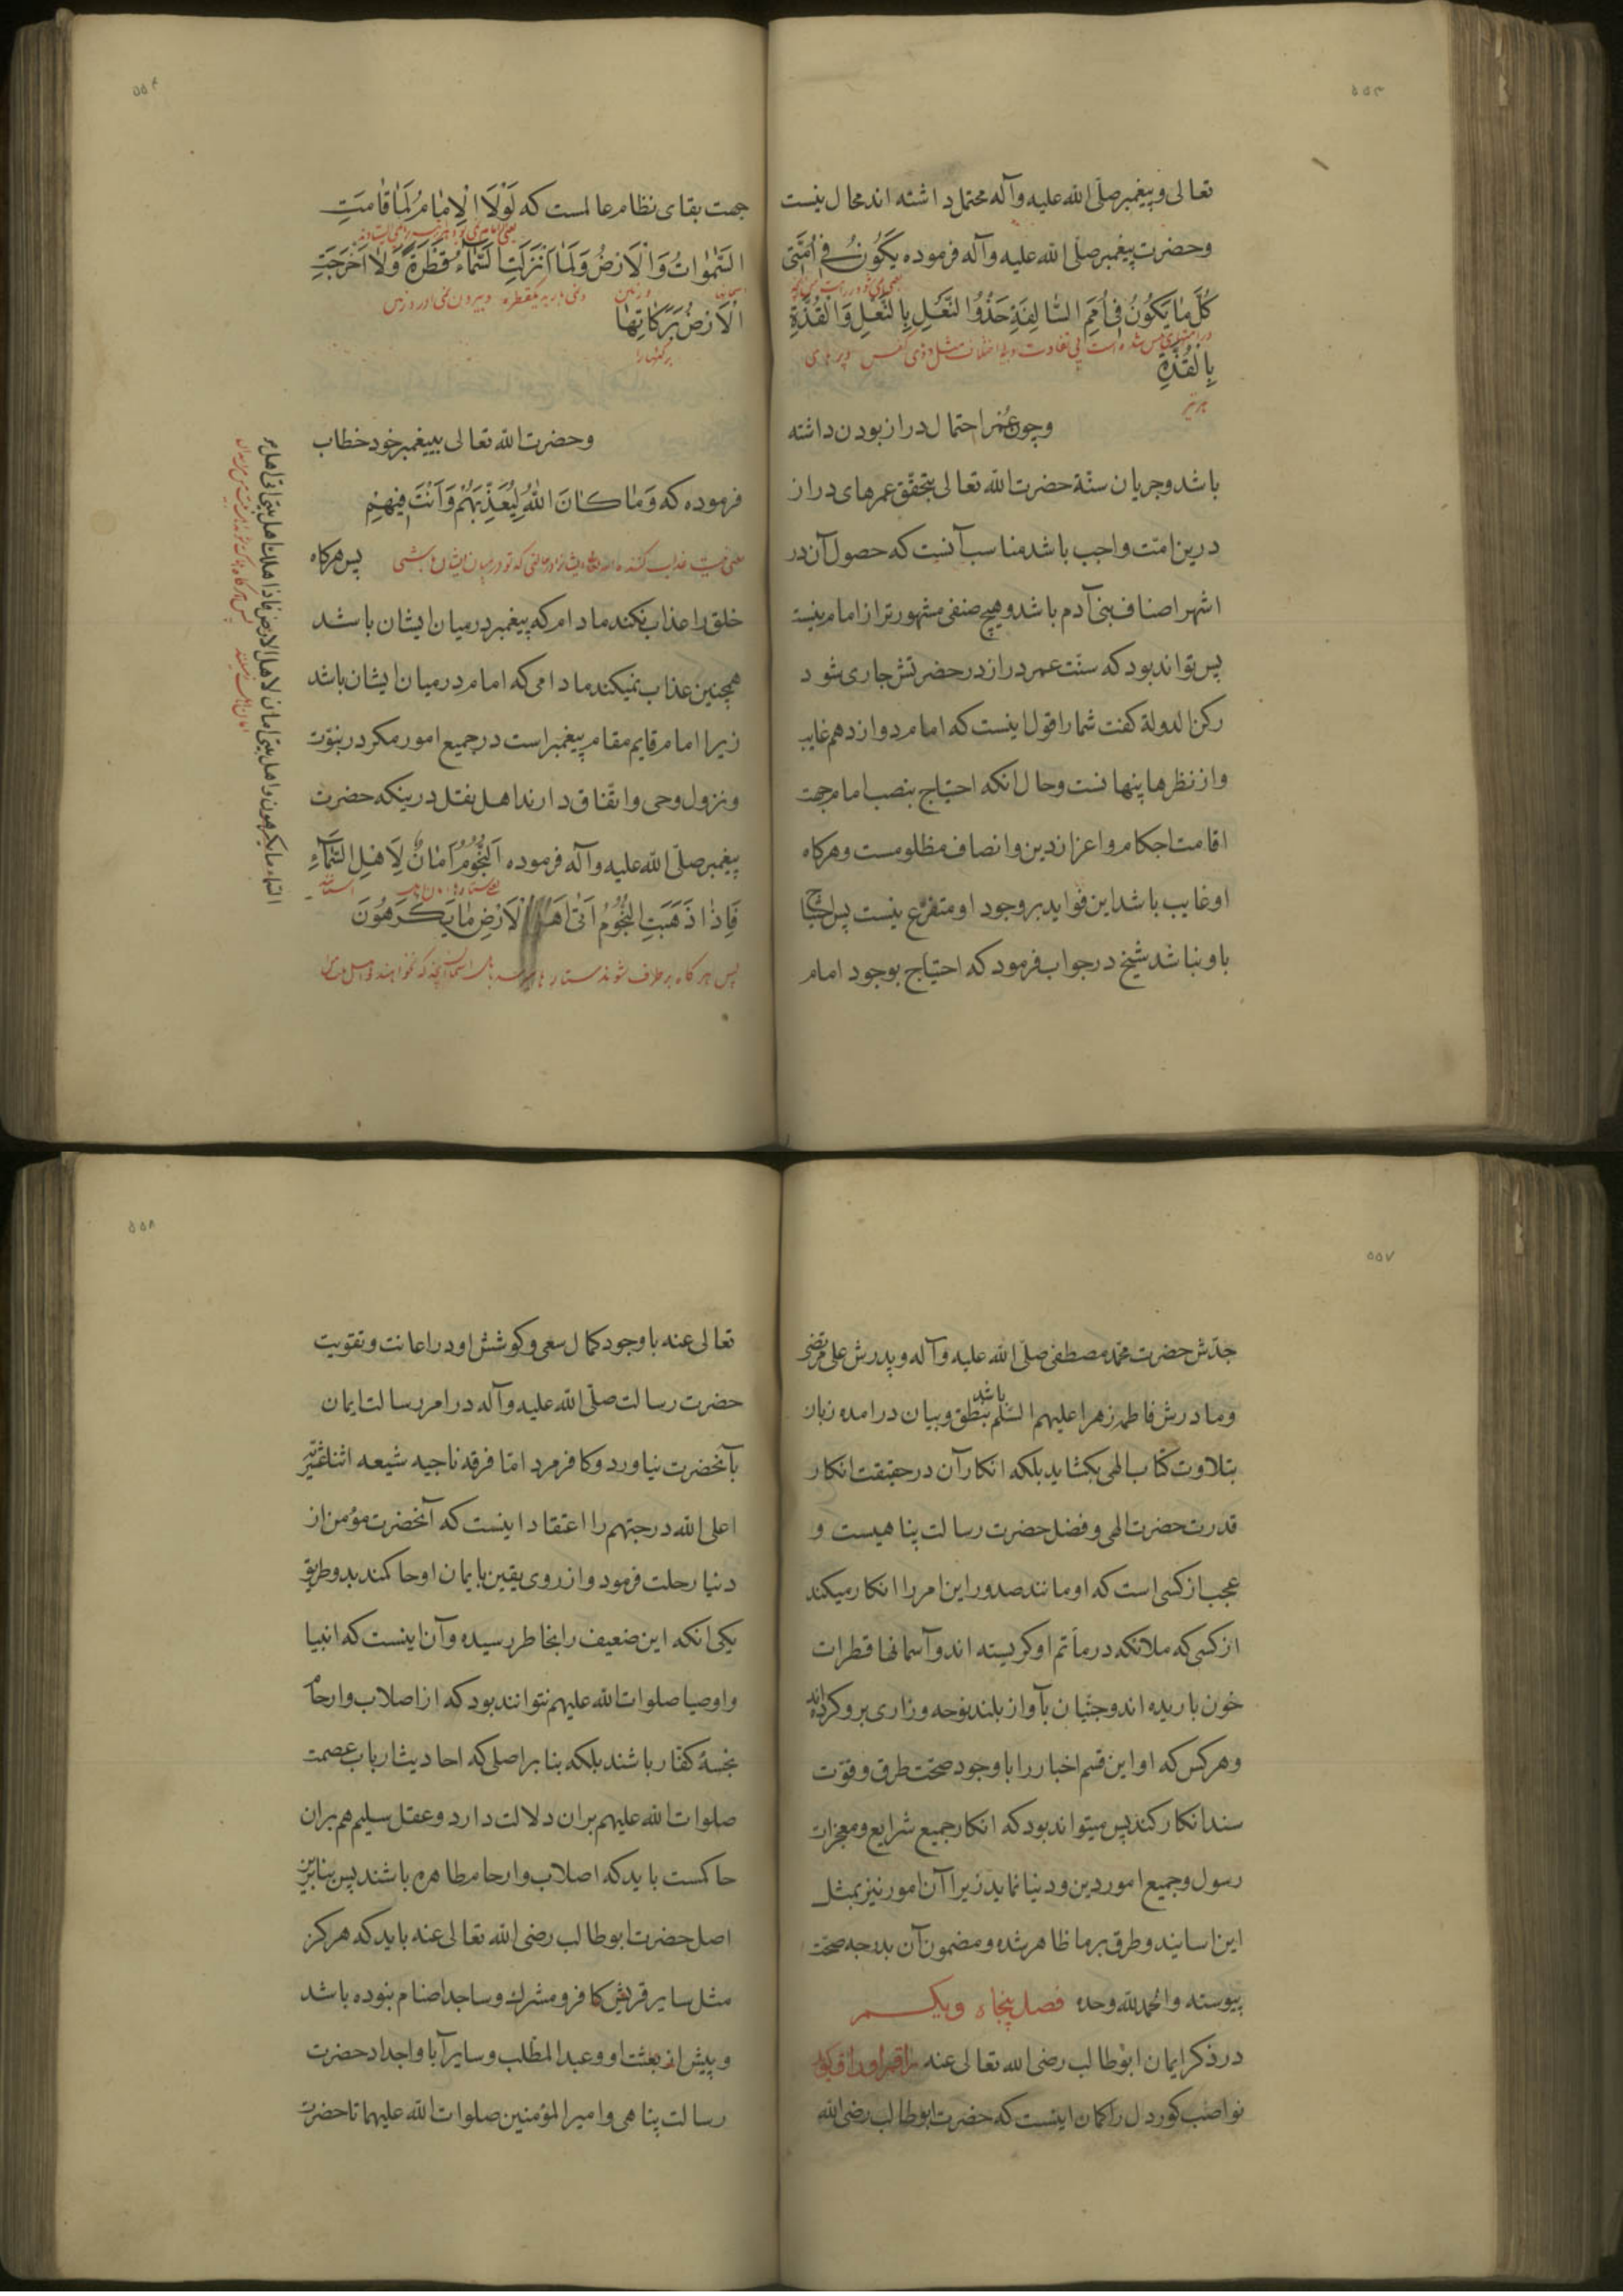 ۵۵۳
تعالی و پیغمبر صلّی الله علیه وآله محتمل داشته اند محال نیست
وحضرت پیغمبر صلّی الله علیه وآله فرموده یَکُونُ فی اُمَّتی
کُلَّ مٰا یَکُونُ فی اُمَمِ السّالِفَةِ حَذْوُ النَّعْلِ بِالنَّعْلِ وَالْقُذَّةِ
بِالْقُذَّةِ
وچون عمر احتمال دراز بودن داشته
باشد وجریان سنّة حضرت الله تعالی بتحقّق عمرهای دراز
درین امّت واجب باشد مناسب آنست که حصول آن در
اشهر اصناف بنی آدم باشد وهیچ صنفی مشهورتر از امام نیست
پس تواند بود که سنّت عمر دراز در حضرتش جاری شود
رکن الدولة کفت شما را قول اینست که امام دوازدهم غایب
واز نظرها پنهانست وحال انکه احتیاج بنصب امام جهت
اقامت احکام واعزاز دین وانصاف مظلومست وهرکاه
او غایب باشد این فواید بر وجود او متفرّع نیست پس احتیاج
باو نباشد شیخ در جواب فرمود که احتیاج بوجود امام
۵۵۴
جهت بقای نظام عالمست که لَوْلَا الْاِمٰامُ لَمٰا قٰامَتِ
السَّمٰوٰاتُ وَالْاَرْضُ وَلَمٰا اَنْزَلَتِ السَّمٰاءُ قَطْرَةً وَلٰا اَخْرَجَتِ
اسمانها وزمین
الْاَرْضُ بَرَکٰاتِهٰا
برکتهارا
وحضرت الله تعالی بپیغمبر خود خطاب
فرموده که وَمٰا کٰانَ اللهُ لِیُعَذِّبَهُمْ وَاَنْتَ فیهِمْ
پس هرکاه
خلق را عذاب نکند مادام که پیغمبر در میان ایشان باشد
همچنین عذاب نمیکند مادامی که امام در میان ایشان باشد
زیرا امام قایم مقام پیغمبر است در جمیع امور مکر در نبوّت
ونزول وحی واتّفاق دارند اهل نقل درینکه حضرت
پیغمبر صلّی الله علیه وآله فرموده اَلنُّجُومُ اَمٰانٌ لِاَهْلِ السَّمٰآءِ
فَاِذٰا ذَهَبَتِ النُّجُومُ اَتٰی اَهْلَ الْاَرْضِ مٰا یَکْرَهُونَ
پس هر کاه بر طرف شوند ستارها
السماء ما یکرهون واهل بیتی امان لاهل الارض فاذا هلک اهل بیتی اتی اهل
۵۵۷
جدّش حضرت محمّد مصطفی صلّی الله علیه وآله وپدرش علی مرتضی
ومادرش فاطمه زهرا علیهم السّلم باشد بنطق وبیان درامده زبان
بتلاوت کتاب الهی بکشاید بلکه انکار آن در حقیقت انکار
قدرت حضرت الهی وفضل حضرت رسالت پناهیست و
عجب از کسی است که او مانند صدور این امر را انکار میکند
از کسی که ملائکه در ماتم او کریسته اند وآسمانها قطرات
خون باریده اند وجنّیان بآواز بلند نوحه وزاری برو کرده اند
وهر کس که او این قسم اخبار را با وجود صحّت طرق وقوّت
سند انکار کند پس میتواند بود که انکار جمیع شرایع ومعجزات
رسول وجمیع امور دین ودنیا نماید زیرا آن امور نیز بمثل
این اسانید وطرق بر ما ظاهر شده ومضمون آن بدرجه صحّت
پیوسته والحمد لله وحده فصل پنجاه ویکم
در ذکر ایمان ابوطالب رضی الله تعالی عنه راقم اوراق کوید
نواصب کوردل را کمان اینست که حضرت ابوطالب رضی الله
۵۵۸
تعالی عنه با وجود کمال سعی وکوشش او در اعانت وتقویت
حضرت رسالت صلّی الله علیه وآله در امر رسالت ایمان
بآنحضرت نیاورد وکافر مرد امّا فرقه ناجیه شیعه اثنا عشریّه
اعلی الله درجتهم را اعتقاد اینست که آنحضرت مؤمن از
دنیا رحلت فرمود واز روی یقین بایمان او حاکمند بدو طریق
یکی انکه این ضعیف را بخاطر رسیده وآن اینست که انبیا
واوصیا صلوات الله علیهم نتوانند بود که از اصلاب وارحام
نجسهٔ کفّار باشند بلکه بنا بر اصلی که احادیث ارباب عصمت
صلوات الله علیهم بران دلالت دارد وعقل سلیم هم بران
حاکمست باید که اصلاب وارحام طاهره باشند پس بنا برین
اصل حضرت ابوطالب رضی الله تعالی عنه باید که هرکز
مثل سایر قریش کافر ومشرک وساجد اصنام نبوده باشد
وپیش از بعثت او وعبد المطّلب وسایر آبا واجداد حضرت
رسالت پناهی وامیر المؤمنین صلوات الله علیهما تا حضرت